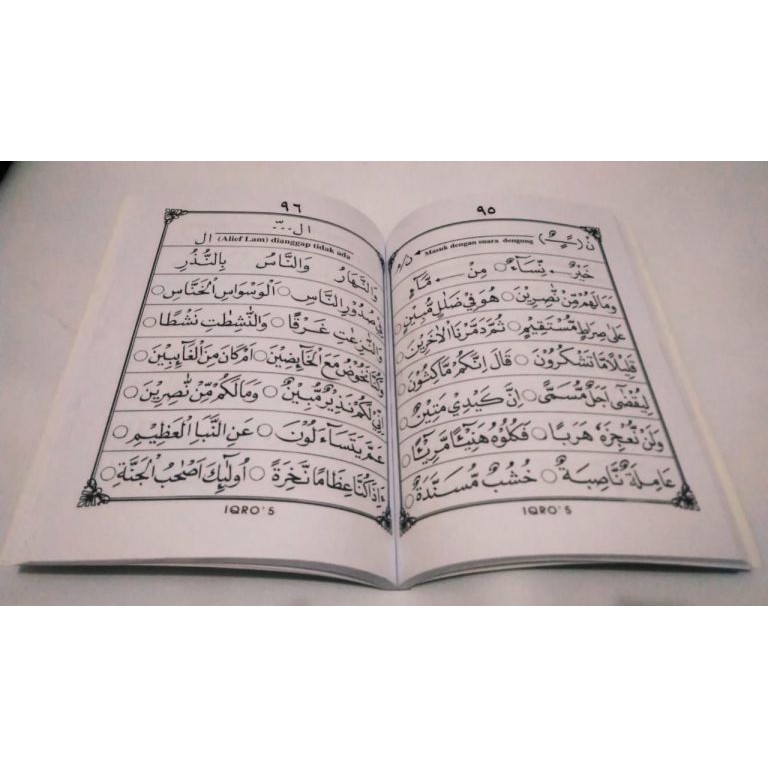 ٩٥
نْ (ــًــٍــٌ) Masuk dengan suara dengung م/ن
خَبَرٌ . نِسَآءٌ ○ مِنْ . مَّآءٍ
وَمَالَهُمْ مِّنْ نّٰصِرِيْنَ ○ هُوَ فِيْ ضَلٰلٍ مُّبِيْنٍ ○
عَلٰى صِرَاطٍ مُّسْتَقِيْمٍ ○ ثُمَّ دَمَّرْنَا الْاٰخَرِيْنَ ○
قَلِيْلًا مَّا تَشْكُرُوْنَ ○ قَالَ اِنَّكُمْ مَّاكِثُوْنَ ○
لِيُقْضٰٓى اَجَلٌ مُّسَمًّى ○ اِنَّ كَيْدِيْ مَتِيْنٌ ○
وَلَنْ نُّعْجِزَهٗ هَرَبًا ○ فَكُلُوْهُ هَنِيْٓـًٔا مَّرِيْٓـًٔا ○
عَامِلَةٌ نَّاصِبَةٌ ○ خُشُبٌ مُّسَنَّدَةٌ ○
IQRO' 5
٩٦
ال...ّ
ال (Alief Lam) dianggap tidak ada
وَالنَّهَارُ وَالنَّاسُ بِالنُّذُرِ
فِيْ صُدُوْرِ النَّاسِ ○ اَلْوَسْوَاسِ الْخَنَّاسِ ○
وَالنّٰزِعٰتِ غَرْقًا ○ وَالنّٰشِطٰتِ نَشْطًا ○
وَكُنَّا نَخُوْضُ مَعَ الْخَآئِضِيْنَ ○ اَمْ كَانَ مِنَ الْغَآئِبِيْنَ ○
اِنِّيْ لَكُمْ نَذِيْرٌ مُّبِيْنٌ ○ وَمَالَكُمْ مِّنْ نّٰصِرِيْنَ ○
عَمَّ يَتَسَآءَلُوْنَ ○ عَنِ النَّبَاِ الْعَظِيْمِ ○
ءَاِذَا كُنَّا عِظَامًا نَّخِرَةً ○ اُولٰٓئِكَ اَصْحٰبُ الْجَنَّةِ ○
IQRO' 5